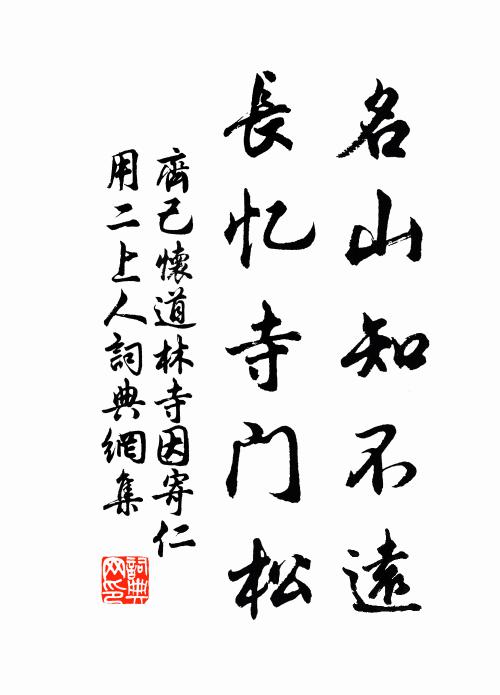 名山知不遠
長忆寺门松
齊己懷道林寺因寄仁
用二上人詞典網集
詞典
网印